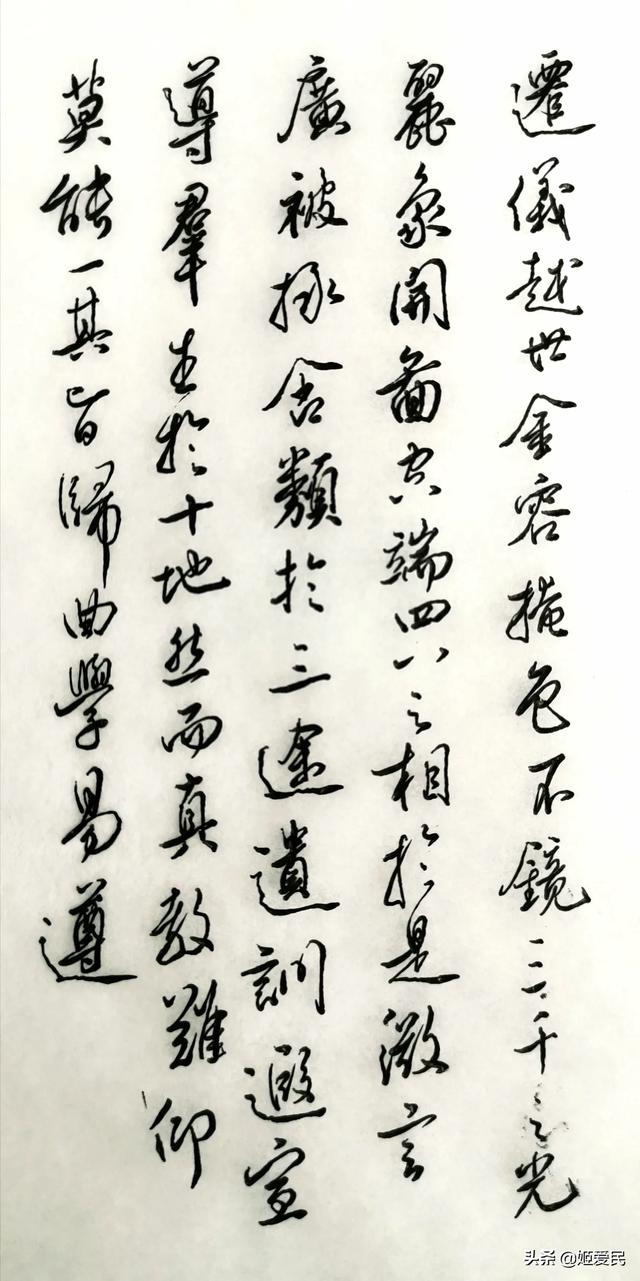 遷儀越世金容掩色不鏡三千之光
麗象開圖空端四八之相於是微言
廣被拯含類於三途遺訓遐宣
導羣生於十地然而真教難仰
莫能一其旨歸曲學易遵
头条 @姬爱民